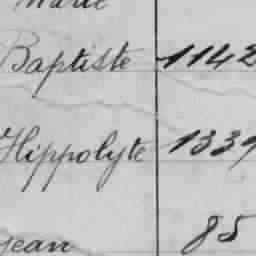 Marie
Baptiste 1142
Hippolyte 1339
Jean 85